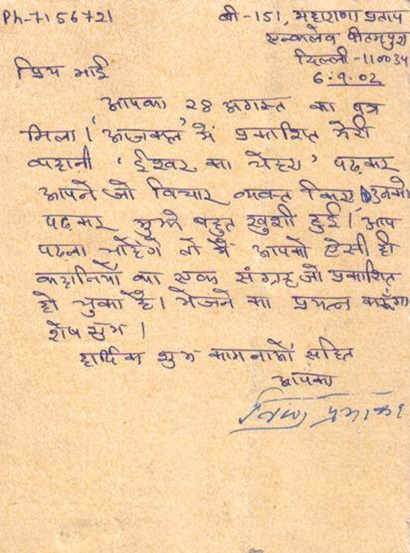 Ph-7156721
बी-151, महाराणा प्रताप
एन्कलेव पीतमपुरा
दिल्ली-110034
6.9.02
प्रिय भाई
आपका 28 अगस्त का पत्र
मिला। 'आजकल' में प्रकाशित मेरी
कहानी 'ईश्वर का चेहरा' पढ़कर
आपने जो विचार व्यक्त किए उनको
पढ़कर मुझे बहुत खुशी हुई। आप
पढ़ना चाहेंगे तो मैं आपको ऐसी ही
कहानियों का एक संग्रह जो प्रकाशित
हो चुका है। भेजने का प्रयत्न करूँगा
शेष शुभ।
हार्दिक शुभ कामनाओं सहित
आपका
विष्णु प्रभाकर